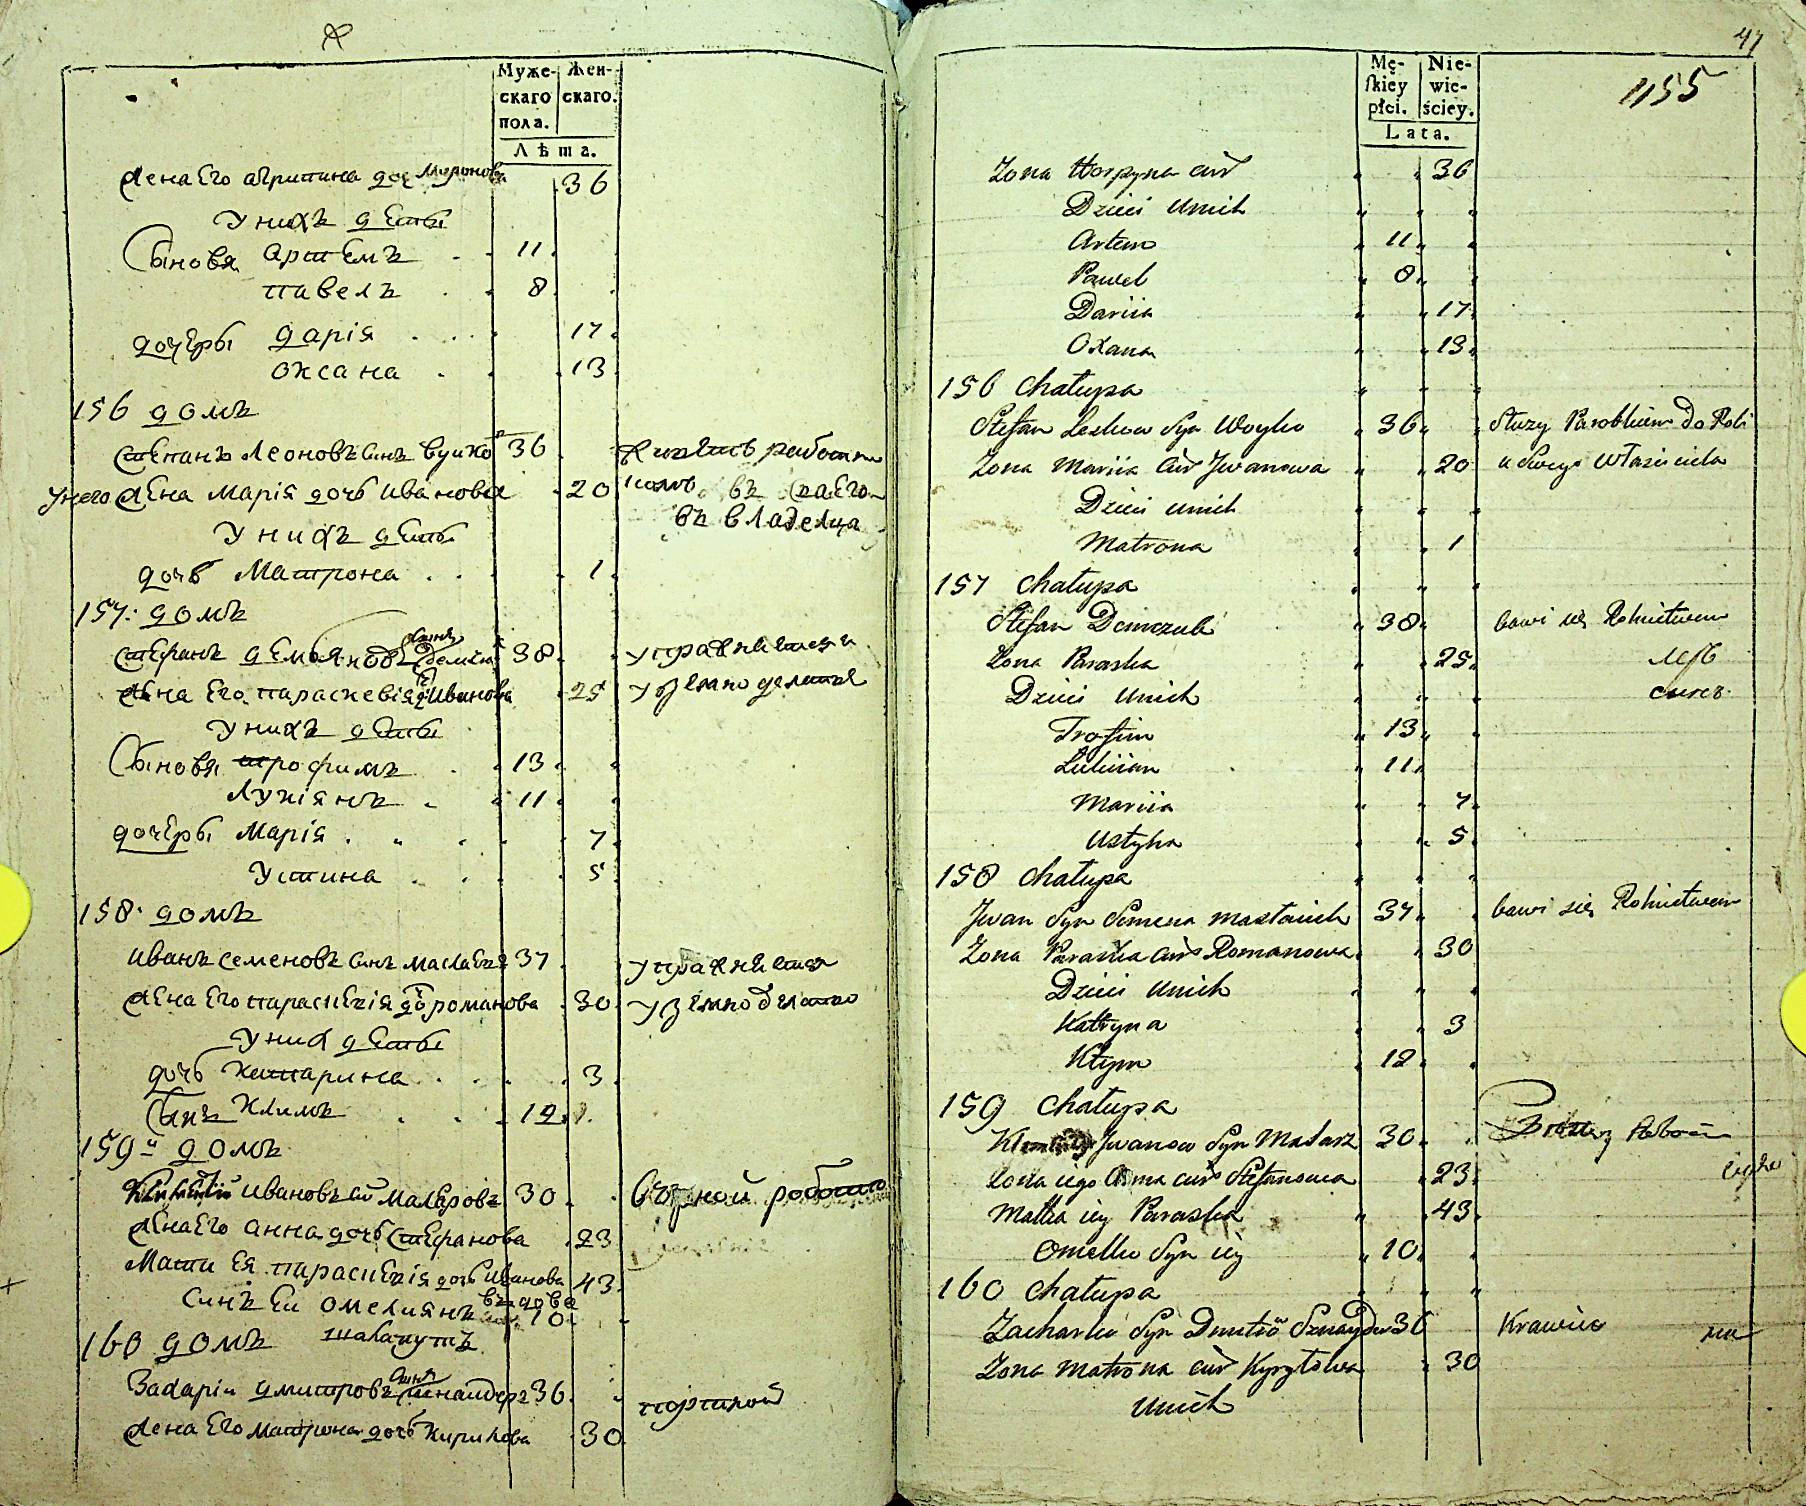 Муже-
скаго
пола.
Жен-
скаго.
Лѣта.
жена Его агрипина доч Миронова 36
У нихъ дѣти
Сыновя артемъ 11
павелъ 8
дочеры дарія 17
оксана 13
156 домъ
степанъ леоновъ синъ вуйко 36
у него жена марія дочь иванова 20
въ
въ владелца
У нихъ дѣти
дочь матрона 1
157: домъ
стефанъ демьяновъ синъ 38 упражняется
жена Его параскевія д: иванова 25
У нихъ дѣти
Сыновя трофимъ 13
лукіянъ 11
дочеры марія 7
устина 5
158. домъ
иванъ семеновъ синъ 37 упражняется
жена Его параскевія до романова 30
У них дѣти
дочь катарина 3
Сынъ климъ 12
159й домъ
ивановъ маляровъ 30 работою
жена Его анна дочь стефанова 23
Мати Ея параскевія дочь иванова 43
въдова
синъ Еи омелиянъ 10
160 домъ
Захарій дмитровъ синъ шнайдеръ 36 портной
жена Его матрона дочь кирилова 30
47
1155
Mę-
skiey
płci.
Nie-
wie-
ściey.
Lata.
Zona cur 36
Dzieci Unich
Artem 11
Paweł 8
Dariia 17
Oxana 13
156 Chałupa
Stefan Leskow Syn Woyko 36 Służy Parobkiem do Roli
Zona Mariia cur Jwanowa 20 u Swego Właściciela
Dzieci unich
Matrona 1
157 Chałupa
Stefan Demczuk 38 bawi się Rolnictwem
Zona Paraska 25
Dzieci Unich
Trofim 13
Lukiian 11
Mariia 7
Ustyna 5
158 Chałupa
Jwan Syn Semena 37 bawi się Rolnictwem
Zona Paraska cur Romanowa 30
Dzieci Unich
Katryna 3
Kłym 12
159 Chałupa
Jwanow Syn Malarz 30
Zona iego Anna cur Stefanowa 23
Matka iey Paraska 43
Omelko Syn iey 10
160 Chałupa
Zacharko Syn Dmitro Sznayder 36 Krawiec
Zona Matrona cur Kyryłowa 30
Unich